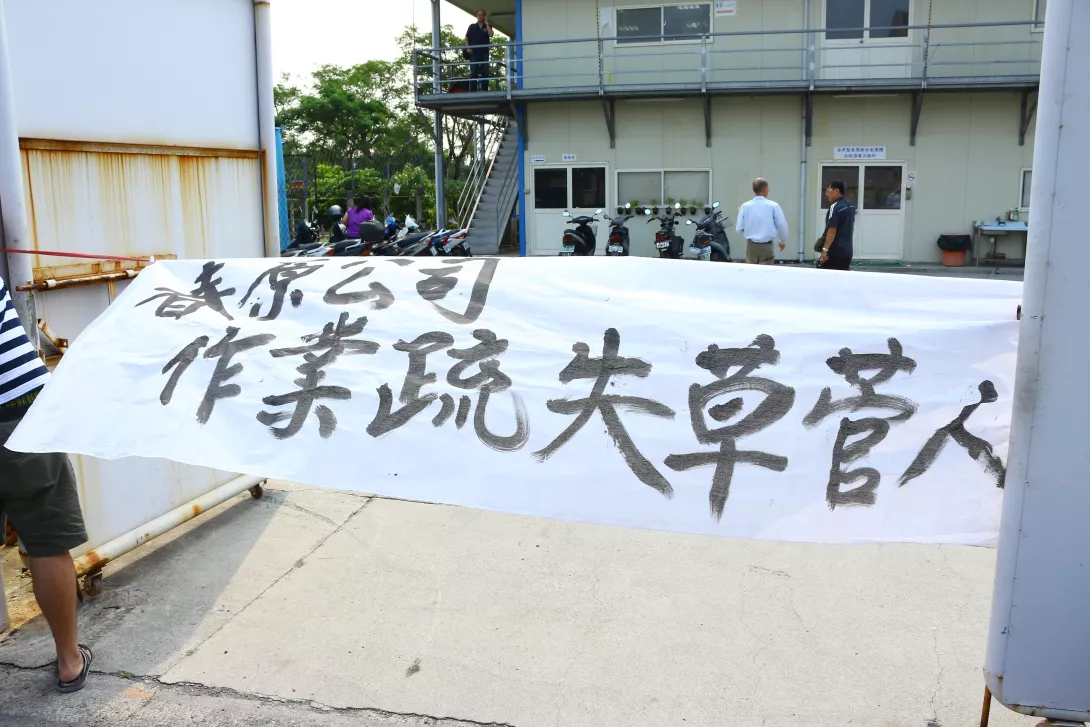 春原公司
作業疏失草菅人